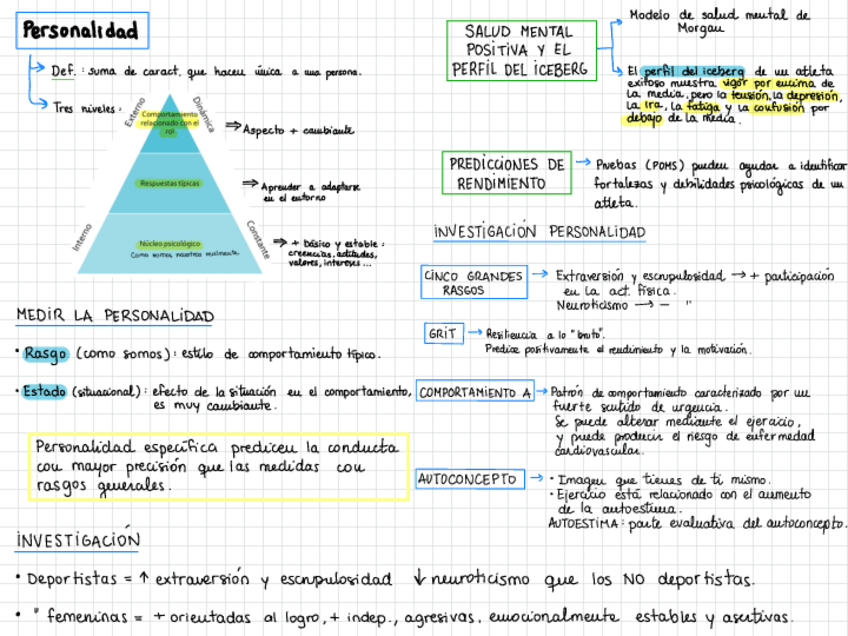 Personalidad
Def. : suma de caract. que hacen única a una persona.
Tres niveles :
Externo
Dinámica
Comportamiento
relacionado con el
rol
⇒ Aspecto + cambiante
Respuestas típicas
⇒ Aprender a adaptarse
en el entorno
Interno
Constante
Núcleo psicológico
Como somos nosotros realmente.
⇒ + básico y estable :
creencias, actitudes,
valores, intereses...
MEDIR LA PERSONALIDAD
• Rasgo (como somos) : estilo de comportamiento típico.
• Estado (situacional) : efecto de la situación en el comportamiento,
es muy cambiante.
Personalidad específica predicen la conducta
con mayor precisión que las medidas con
rasgos generales.
INVESTIGACIÓN
• Deportistas = ↑ extraversión y escrupulosidad ↓ neuroticismo que los NO deportistas.
• " femeninas = + orientadas al logro, + indep., agresivas, emocionalmente estables y asertivas.
SALUD MENTAL
POSITIVA Y EL
PERFIL DEL ICEBERG
Modelo de salud mental de
Morgan
El perfil del iceberg de un atleta
exitoso muestra vigor por encima de
la media, pero la tensión, la depresión,
la ira, la fatiga y la confusión por
debajo de la media.
PREDICCIONES DE
RENDIMIENTO
→ Pruebas (POMS) pueden ayudar a identificar
fortalezas y debilidades psicológicas de un
atleta.
INVESTIGACIÓN PERSONALIDAD
CINCO GRANDES
RASGOS
→ Extraversión y escrupulosidad → + participación
en la act. física.
Neuroticismo → - "
GRIT
→ Resiliencia a lo "bruto".
Predice positivamente el rendimiento y la motivación.
COMPORTAMIENTO A
→ Patrón de comportamiento caracterizado por un
fuerte sentido de urgencia.
Se puede alterar mediante el ejercicio,
y puede producir el riesgo de enfermedad
cardiovascular.
AUTOCONCEPTO
→ • Imagen que tienes de ti mismo.
• Ejercicio está relacionado con el aumento
de la autoestima.
AUTOESTIMA : parte evaluativa del autoconcepto.